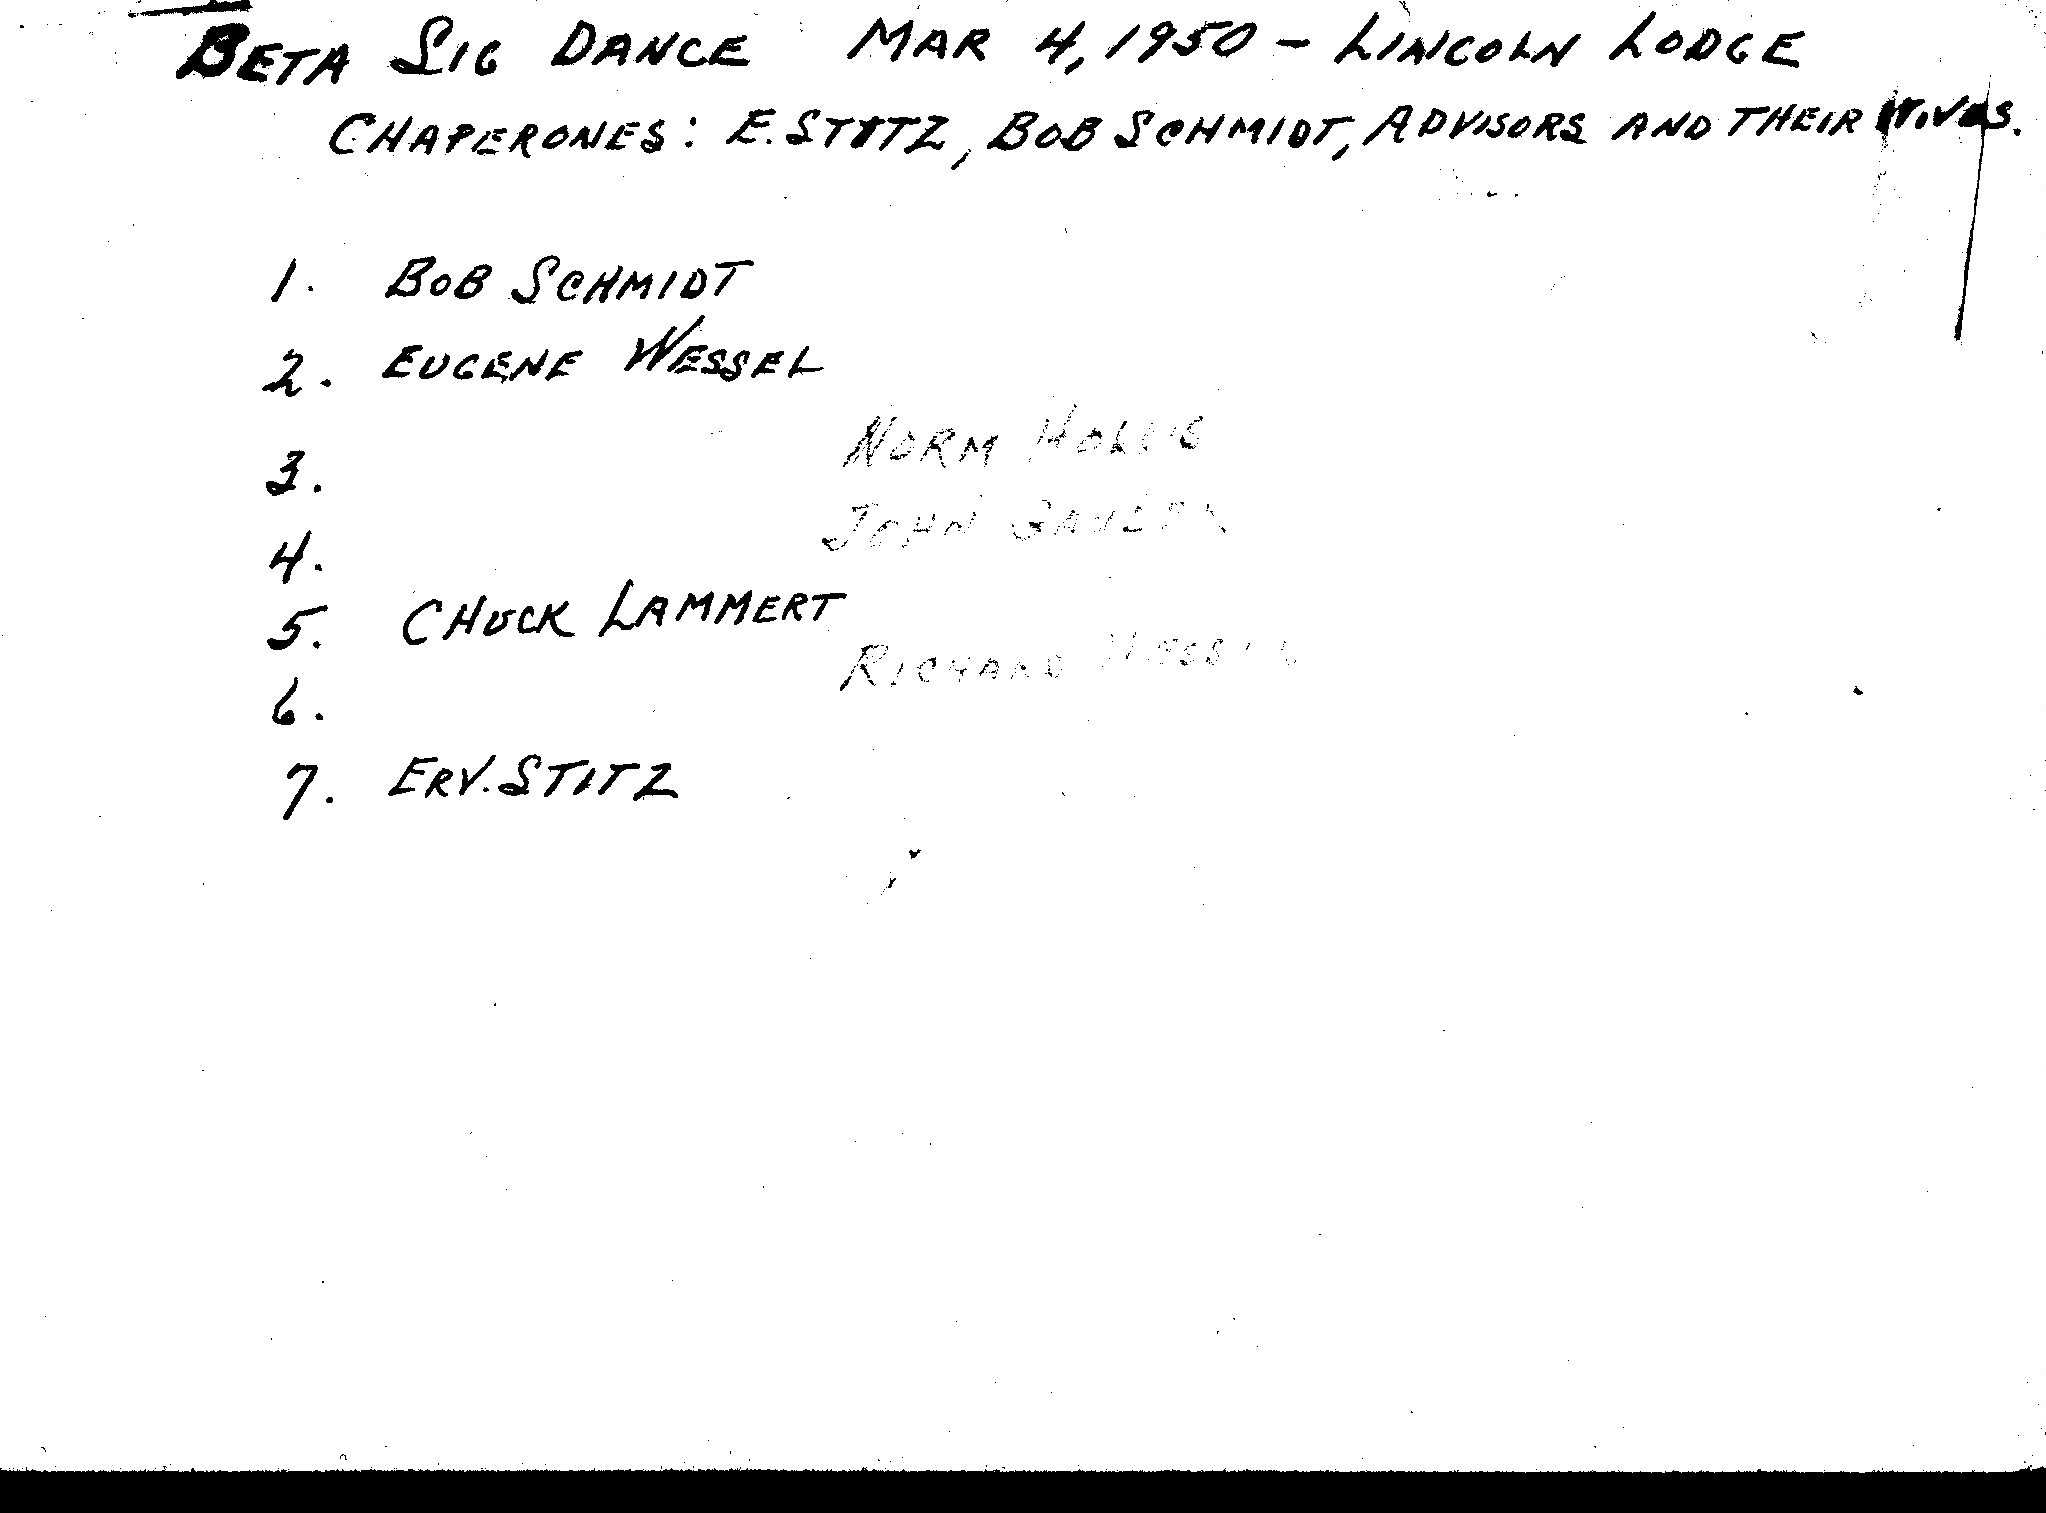 BETA SIG DANCE MAR 4, 1950 - LINCOLN LODGE
CHAPERONES: E. STITZ, BOB SCHMIDT, ADVISORS AND THEIR WIVES.
1. BOB SCHMIDT
2. EUGENE WESSEL
3. NORM HOLLIS
4. JOHN
5. CHUCK LAMMERT
6. RICHARD
7. ERV. STITZ